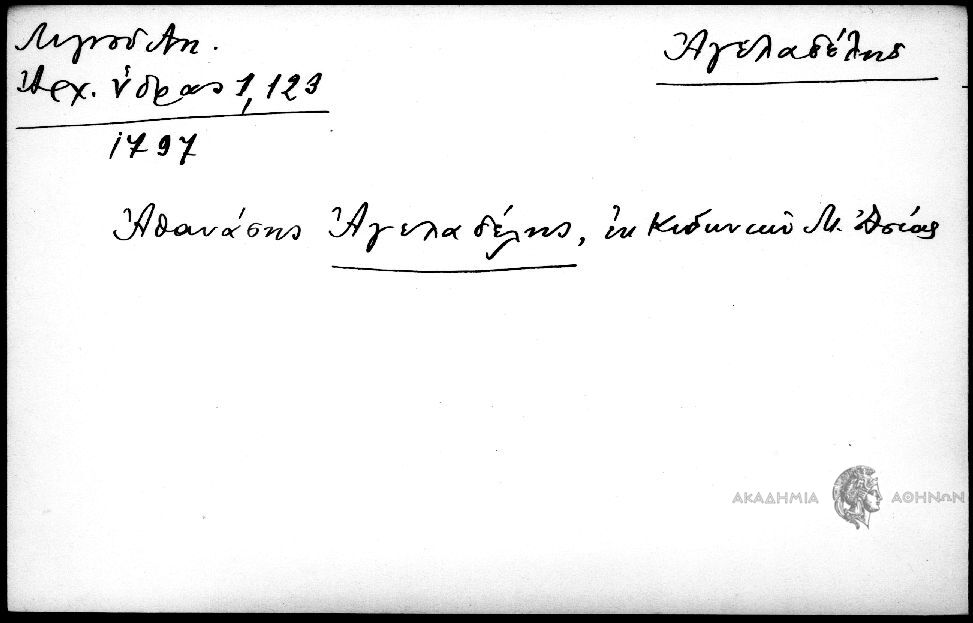 Λιγνοῦ Ἀντ.
Ἀρχ. Ὕδρας 1, 123
1797
Ἀγελαδέλης
Ἀθανάσης Ἀγελαδέλης, ἐκ Κυδωνιῶν Μ. Ἀσίας
ΑΚΑΔΗΜΙΑ ΑΘΗΝΩΝ